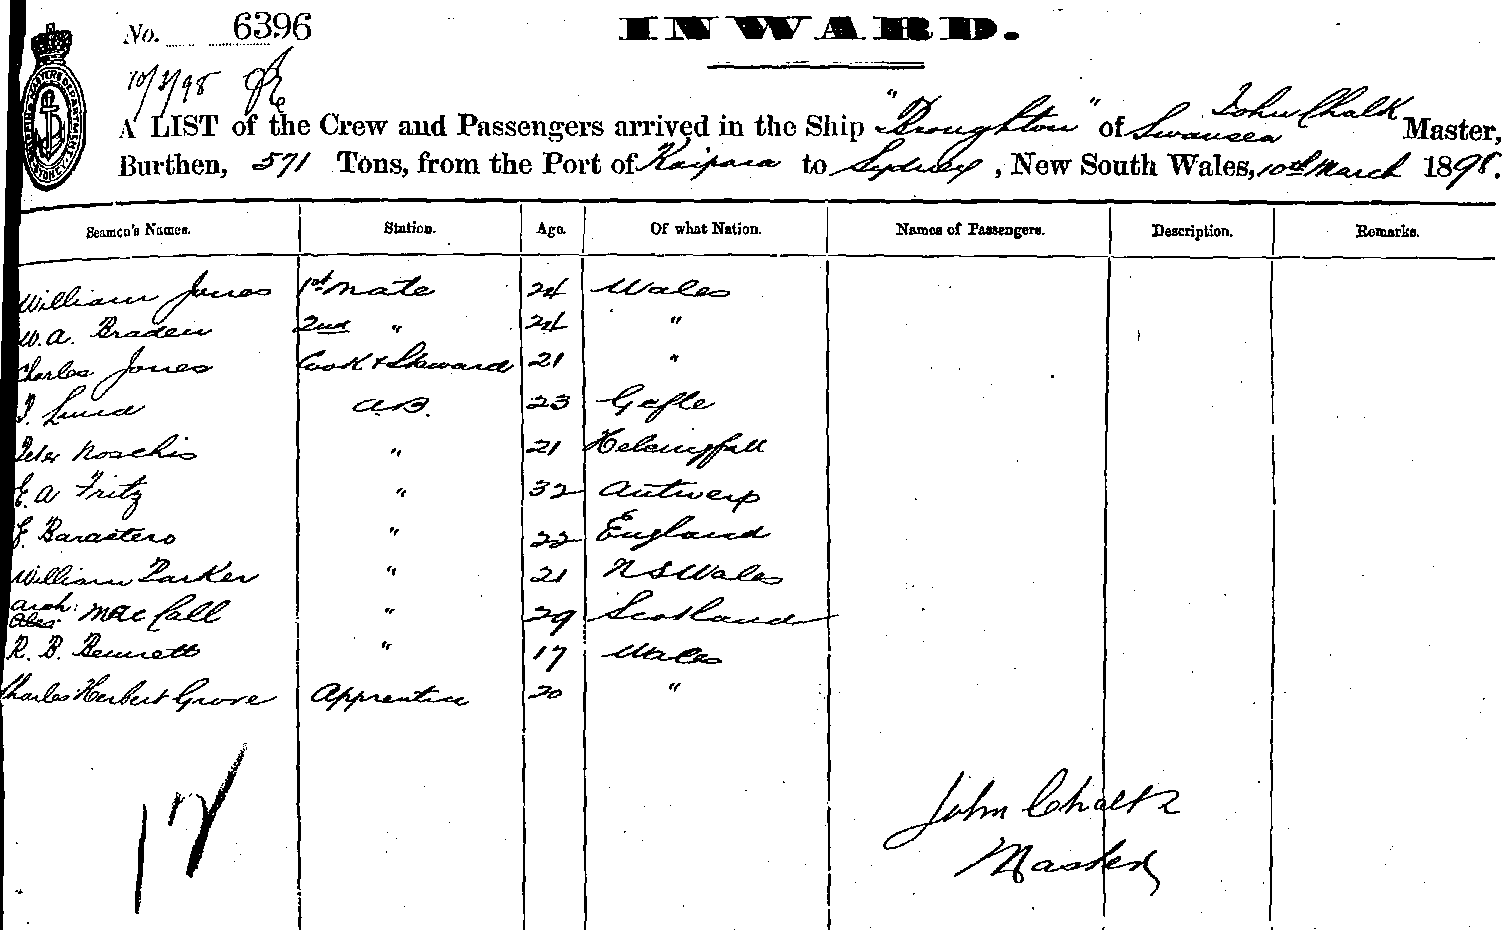 No. 6396 INWARD.
10/3/98
John Chalk
A LIST of the Crew and Passengers arrived in the Ship "Broughton" of Swansea Master,
Burthen, 571 Tons, from the Port of Kaipara to Sydney, New South Wales, 10th March 1898.
Seamen's Names. Station. Age. Of what Nation. Names of Passengers. Description. Remarks.
William Jones 1st Mate 24 Wales
W. A. Braden 2nd " 24 "
Charles Jones Cook & Steward 21 "
Lund A.B. 23 Gefle
Peter Noschis " 21 Helsingfall
E. A Fritz " 32 Antwerp
Barastero " 22 England
William Parker " 21 N S Wales
Arch: MacCall " 29 Scotland
R. B. Bennett " 17 Wales
Charles Herbert Grove Apprentice 20 "
John Chalk
Master